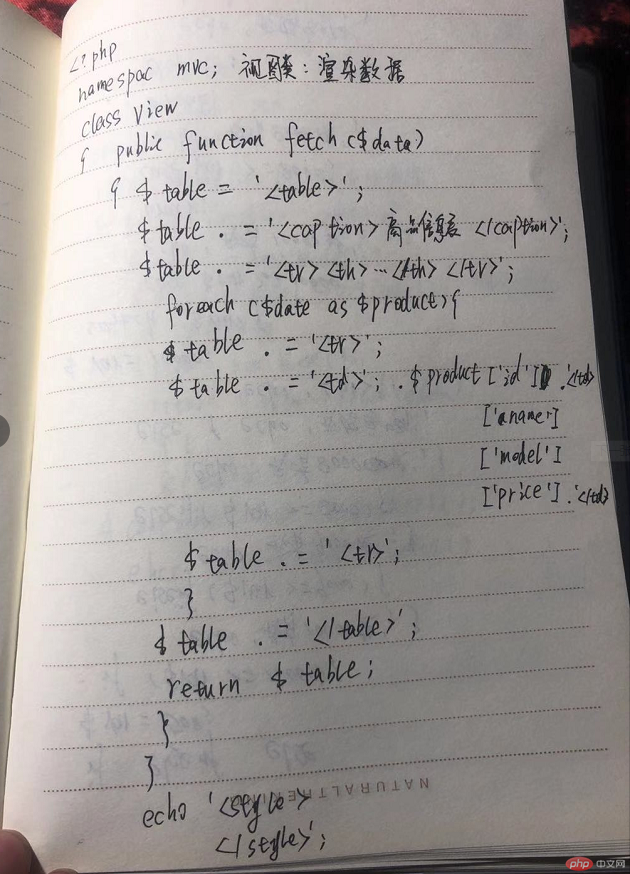 <?php
namespac mvc; 视图类：渲染数据
class View
{ public function fetch ($data)
{ $table = '<table>';
$table . = '<caption> 商品信息表 </caption>';
$table . = '<tr> <th> ... </th> </tr>';
foreach ($date as $product) {
$table . = '<tr>';
$table . = '<td>'; . $product ['id'] . '</td>
['aname']
['model']
['price'] . '</td>
$table . = '<tr>';
}
$table . = '</table>';
return $table;
}
}
echo '<style>
</style>';
NATURALTRE
php 中文网